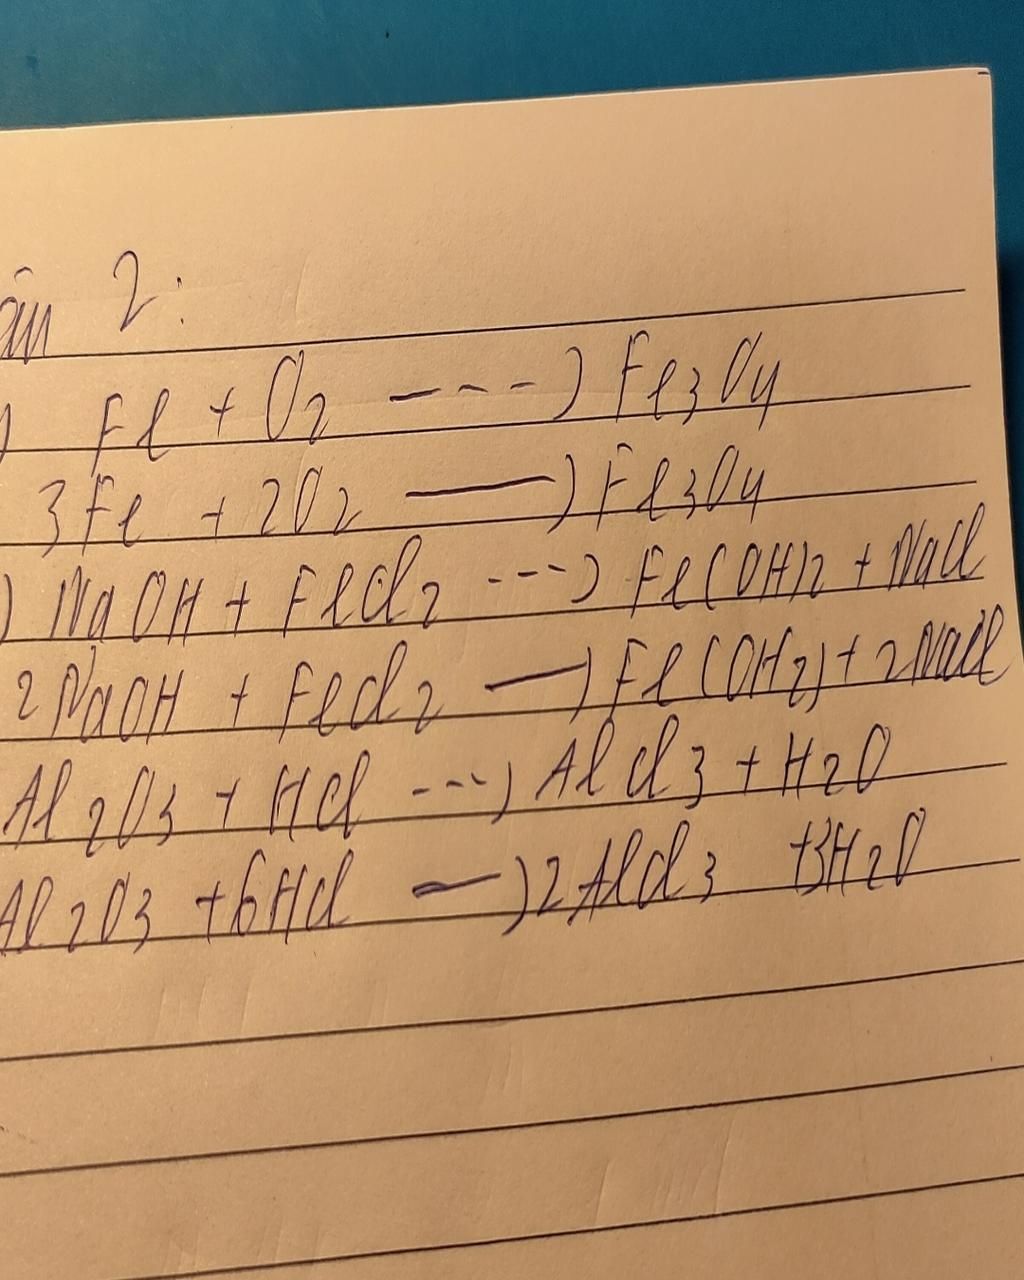 2:
) Fe + O2 ---) Fe3O4
3Fe + 2O2 —) Fe3O4
) NaOH + FeCl2 ---) Fe(OH)2 + NaCl
2NaOH + FeCl2 —) Fe(OH2) + 2NaCl
Al2O3 + HCl ---) AlCl3 + H2O
Al2O3 + 6HCl —) 2AlCl3 +3H2O